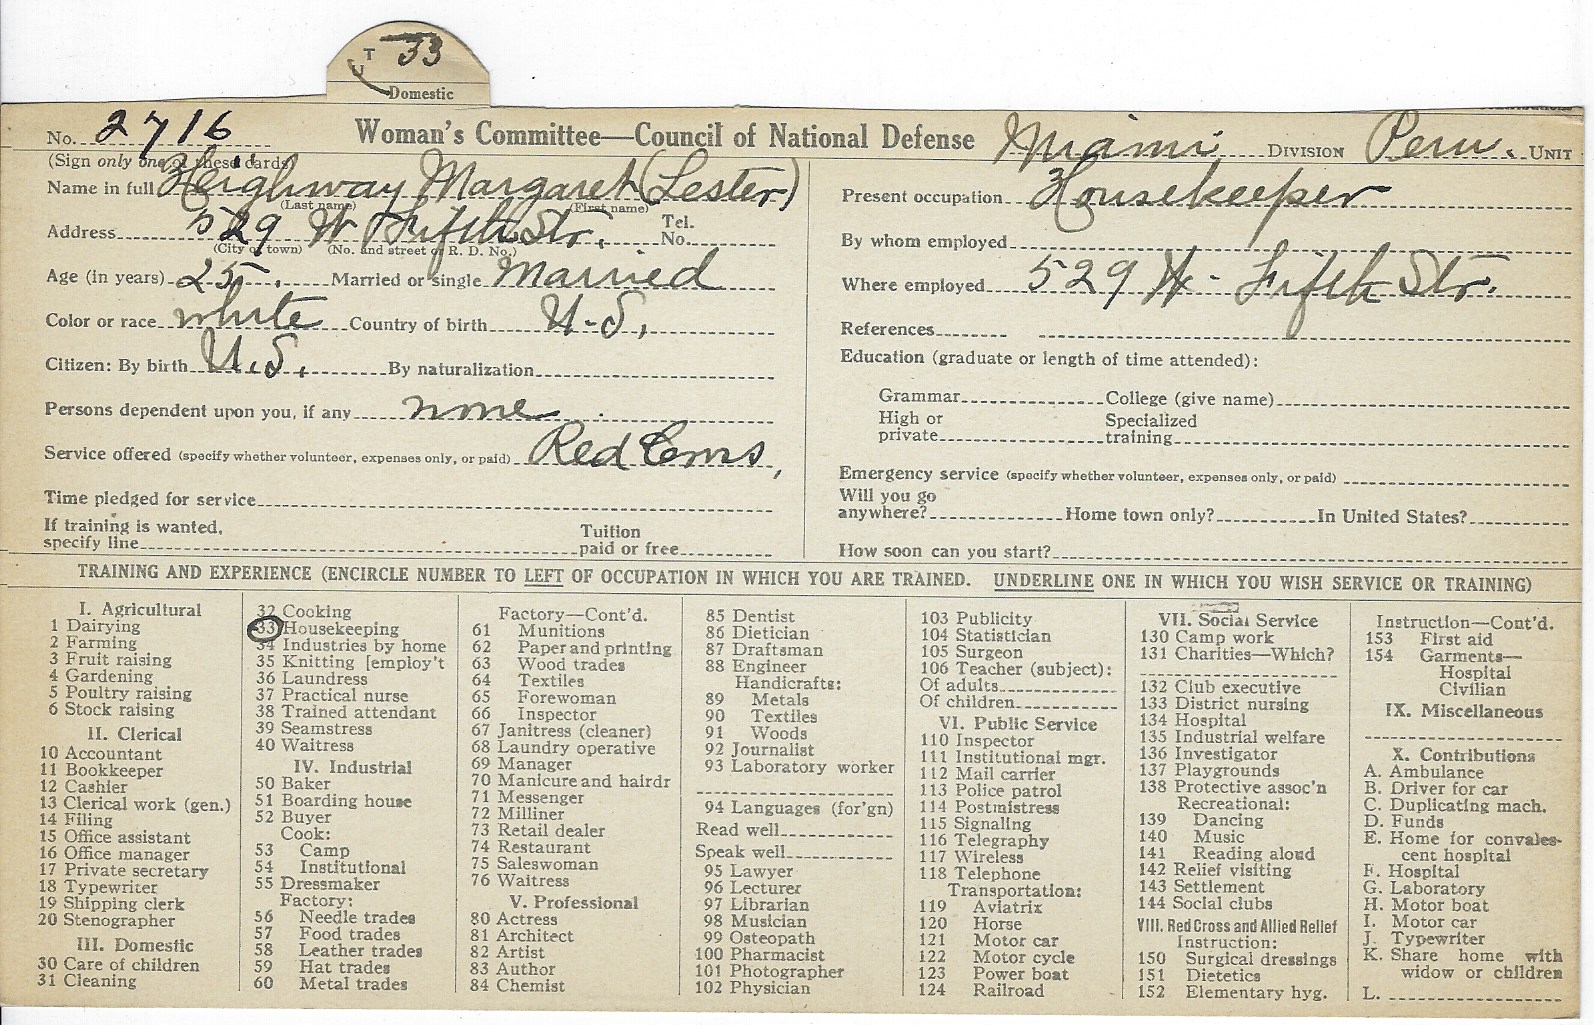 T 33
U
Domestic
No. 2716 Woman's Committee—Council of National Defense Miami DIVISION Peru. UNIT
(Sign only one of these cards)
Name in full Heighway Margaret (Lester)
(Last name) (First name)
Address 529 W Fifth Str. Tel. No.
(City or town) (No. and street or R. D. No.)
Age (in years) 25. Married or single Married
Color or race white Country of birth U.S.
Citizen: By birth U.S. By naturalization
Persons dependent upon you, if any none
Service offered (specify whether volunteer, expenses only, or paid) Red Cross,
Time pledged for service
If training is wanted,
specify line Tuition paid or free
Present occupation Housekeeper
By whom employed
Where employed 529 W- Fifth Str.
References
Education (graduate or length of time attended):
Grammar College (give name)
High or private Specialized training
Emergency service (specify whether volunteer, expenses only, or paid)
Will you go
anywhere? Home town only? In United States?
How soon can you start?
TRAINING AND EXPERIENCE (ENCIRCLE NUMBER TO LEFT OF OCCUPATION IN WHICH YOU ARE TRAINED. UNDERLINE ONE IN WHICH YOU WISH SERVICE OR TRAINING)
I. Agricultural
1 Dairying
2 Farming
3 Fruit raising
4 Gardening
5 Poultry raising
6 Stock raising
II. Clerical
10 Accountant
11 Bookkeeper
12 Cashier
13 Clerical work (gen.)
14 Filing
15 Office assistant
16 Office manager
17 Private secretary
18 Typewriter
19 Shipping clerk
20 Stenographer
III. Domestic
30 Care of children
31 Cleaning
32 Cooking
33 Housekeeping
34 Industries by home
35 Knitting [employ't
36 Laundress
37 Practical nurse
38 Trained attendant
39 Seamstress
40 Waitress
IV. Industrial
50 Baker
51 Boarding house
52 Buyer
Cook:
53 Camp
54 Institutional
55 Dressmaker
Factory:
56 Needle trades
57 Food trades
58 Leather trades
59 Hat trades
60 Metal trades
Factory—Cont'd.
61 Munitions
62 Paper and printing
63 Wood trades
64 Textiles
65 Forewoman
66 Inspector
67 Janitress (cleaner)
68 Laundry operative
69 Manager
70 Manicure and hairdr
71 Messenger
72 Milliner
73 Retail dealer
74 Restaurant
75 Saleswoman
76 Waitress
V. Professional
80 Actress
81 Architect
82 Artist
83 Author
84 Chemist
85 Dentist
86 Dietician
87 Draftsman
88 Engineer
Handicrafts:
89 Metals
90 Textiles
91 Woods
92 Journalist
93 Laboratory worker
94 Languages (for'gn)
Read well
Speak well
95 Lawyer
96 Lecturer
97 Librarian
98 Musician
99 Osteopath
100 Pharmacist
101 Photographer
102 Physician
103 Publicity
104 Statistician
105 Surgeon
106 Teacher (subject):
Of adults
Of children
VI. Public Service
110 Inspector
111 Institutional mgr.
112 Mail carrier
113 Police patrol
114 Postmistress
115 Signaling
116 Telegraphy
117 Wireless
118 Telephone
Transportation:
119 Aviatrix
120 Horse
121 Motor car
122 Motor cycle
123 Power boat
124 Railroad
VII. Social Service
130 Camp work
131 Charities—Which?
132 Club executive
133 District nursing
134 Hospital
135 Industrial welfare
136 Investigator
137 Playgrounds
138 Protective assoc'n
Recreational:
139 Dancing
140 Music
141 Reading aloud
142 Relief visiting
143 Settlement
144 Social clubs
VIII. Red Cross and Allied Relief
Instruction:
150 Surgical dressings
151 Dietetics
152 Elementary hyg.
Instruction—Cont'd.
153 First aid
154 Garments—
Hospital
Civilian
IX. Miscellaneous
X. Contributions
A. Ambulance
B. Driver for car
C. Duplicating mach.
D. Funds
E. Home for convales-
cent hospital
F. Hospital
G. Laboratory
H. Motor boat
I. Motor car
J. Typewriter
K. Share home with
widow or children
L.